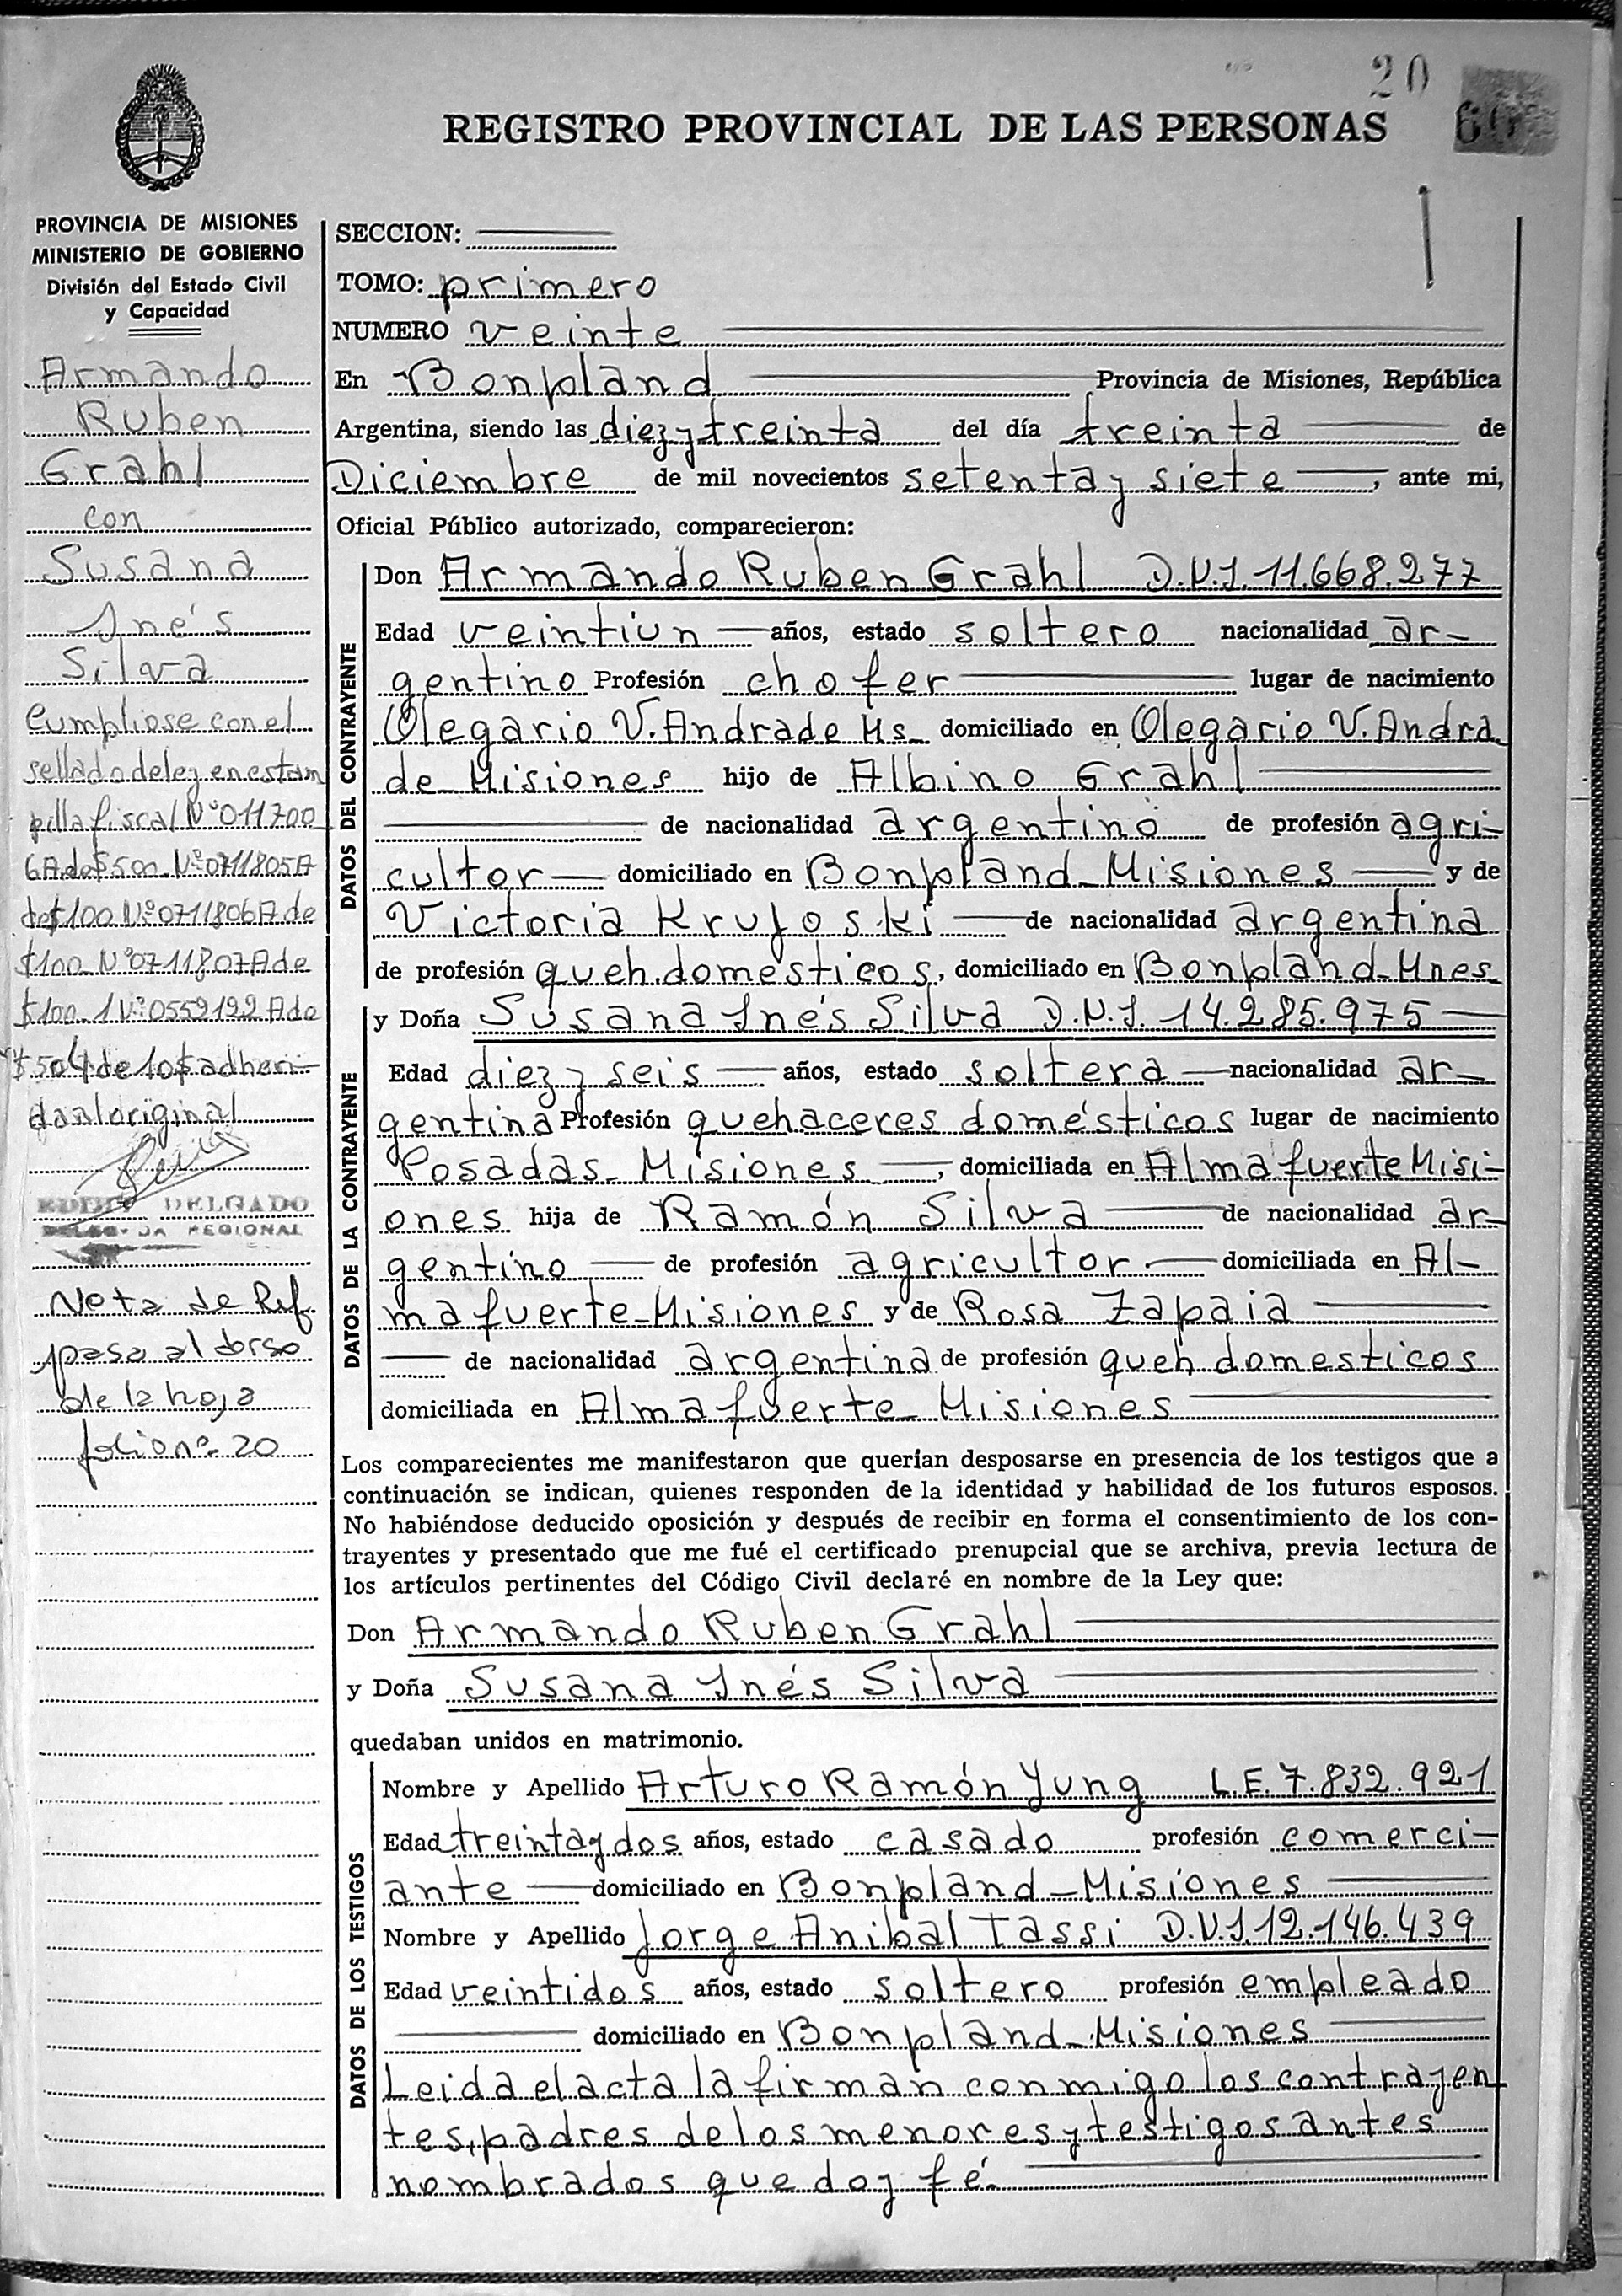 20
REGISTRO PROVINCIAL DE LAS PERSONAS
PROVINCIA DE MISIONES
MINISTERIO DE GOBIERNO
División del Estado Civil
y Capacidad
Armando
Ruben
Grahl
con
Susana
Inés
Silva
Cumpliose con el
sellado de ley en estam
pilla fiscal Nº 011700
6A de $500 Nº 0711805A
de $100 Nº 0711806A de
$100 Nº 0711807A de
$100 1 Nº 0559192 A de
$50 4 de 10$ adheri-
das al original
DELGADO
REGIONAL
Nota de Ref.
pasa al dorso
de la hoja
folio nº 20
SECCION:
TOMO: primero
NUMERO veinte
En Bonpland Provincia de Misiones, República
Argentina, siendo las diez y treinta del día treinta de
Diciembre de mil novecientos setenta y siete, ante mi,
Oficial Público autorizado, comparecieron:
DATOS DEL CONTRAYENTE
Don Armando Ruben Grahl D.N.I. 11.668.277
Edad veintiun años, estado soltero nacionalidad ar-
gentino Profesión chofer lugar de nacimiento
Olegario V. Andrade Ms. domiciliado en Olegario V. Andra
de Misiones hijo de Albino Grahl
de nacionalidad argentino de profesión agri-
cultor domiciliado en Bonpland Misiones y de
Victoria Krujoski de nacionalidad argentina
de profesión queh. domésticos, domiciliado en Bonpland-Mnes
DATOS DE LA CONTRAYENTE
y Doña Susana Inés Silva D.N.I. 14.285.975
Edad diez y seis años, estado soltera nacionalidad ar-
gentina Profesión quehaceres domésticos lugar de nacimiento
Posadas Misiones, domiciliada en Almafuerte Misi-
ones hija de Ramón Silva de nacionalidad ar-
gentino de profesión agricultor domiciliada en Al-
mafuerte-Misiones y de Rosa Zapaia
de nacionalidad argentina de profesión queh domesticos
domiciliada en Almafuerte Misiones
Los comparecientes me manifestaron que querían desposarse en presencia de los testigos que a
continuación se indican, quienes responden de la identidad y habilidad de los futuros esposos.
No habiéndose deducido oposición y después de recibir en forma el consentimiento de los con-
trayentes y presentado que me fué el certificado prenupcial que se archiva, previa lectura de
los artículos pertinentes del Código Civil declaré en nombre de la Ley que:
Don Armando Ruben Grahl
y Doña Susana Inés Silva
quedaban unidos en matrimonio.
DATOS DE LOS TESTIGOS
Nombre y Apellido Arturo Ramón Yung L.E. 7.832.921
Edad treinta y dos años, estado casado profesión comerci-
ante domiciliado en Bonpland-Misiones
Nombre y Apellido Jorge Anibal Tassi D.N.I. 12.146.439
Edad veintidos años, estado soltero profesión empleado
domiciliado en Bonpland-Misiones
Leida el acta la firman conmigo los contrayen
tes, padres de los menores y testigos antes
nombrados que doy fé.